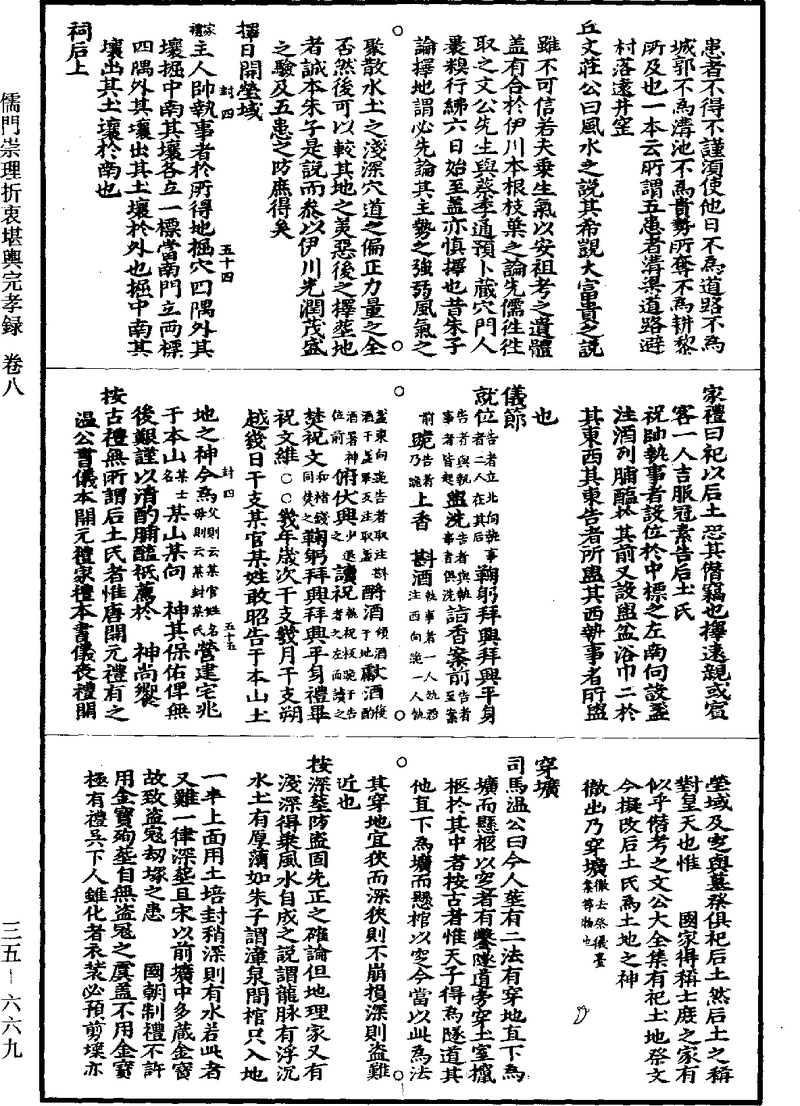 患者不得不謹須使他日不為道路不為
城郭不為溝池不為貴勢所奪不為耕犂
所及也一本云所謂五患者溝渠道路避
村落遠井窑
丘文莊公曰風水之說其希覬大富貴之說
雖不可信若夫乗生氣以安祖考之遺體
盖有合於伊川本根枝葉之論先儒徃徃
取之文公先生與蔡季通預卜藏穴門人
裹糗行紼六日始至盖亦慎擇也昔朱子
論擇地謂必先論其主勢之強弱風氣之
聚散水土之淺深穴道之偏正力量之全
否然後可以較其地之美惡後之擇塟地
者誠本朱子是說而叅以伊川光潤茂盛
之驗及五患之防庶得矣
擇日開塋域
家禮主人帥執事者於所得地掘穴四隅外其
壤掘中南其壤各立一標當南門立兩標
四隅外其壤出其土壤於外也掘中南其
壤出其土壤於南也
祠后土
家禮曰祀以后土恐其僭竊也擇遠親或賓
客一人吉服冠素告后土氏
祝帥執事者設位於中標之左南向設盞
注酒列脯醢於其前又設盥盆浴巾二於
其東西其東告者所盥其西執事者所盥
也
儀節
就位告者立北向執事者二人在其後鞠躬拜興拜興平身
告者與執事者皆起盥洗告者與執事者俱洗詣香案前告者至案
前告者乃跪跪上香斟酒執事者一人執酒注西向跪一人執
盞東向跪告者取注斟酒于盞畢反注取盞酹酒傾酒于地獻酒復斟
酒置神位前俯伏興少退之讀祝執祝板跪于告者之左而讀之
焚祝文和楮錢同焚之鞠躬拜興拜興平身禮畢
祝文維○○幾年歲次干支幾月干支朔
越幾日干支某官某姓敢昭告于本山土
地之神今為父則云某官姓名母則云某封某氏營建宅兆
于本山名某士某山某向　神其保佑俾無
後艱謹以清酌脯醢衹薦於　神尚饗
按古禮無所謂后土氏者惟唐開元禮有之
温公書儀本開元禮家禮本書儀丧禮開
塋域及窆與墓祭俱祀后土然后土之稱
對皇天也惟　國家得稱士庶之家有
似乎僭考之文公大全集有祀土地祭文
今擬改后土氏為土地之神
徹出乃穿壙徹去祭儀臺案等物也
穿壙
司馬温公曰今人塟有二法有穿地直下為
壙而懸柩以窆者有鑿隧道旁穿土室攛
柩於其中者按古者惟天子得為隧道其
他直下為壙而懸棺以窆今當以此為法
其穿地宜狹而深狹則不崩損深則盜難
近也
按深塟防盜固先正之確論但地理家又有
淺深得乗風水自成之說謂龍脉有浮沉
水土有厚薄如朱子謂漳泉間棺只入地
一半上面用土培封稍深則有水若此者
又難一律深塟且宋以前壙中多藏金寳
故致盜冦刼塚之患　國朝制禮不許
用金寳殉塟自無盜冦之虞盖不用金寳
極有禮吴下人雖化者衣裳必預剪壊亦
封四
五十四
封四
五十五
儒門崇理折衷堪輿完孝録　卷八
三五－六六九